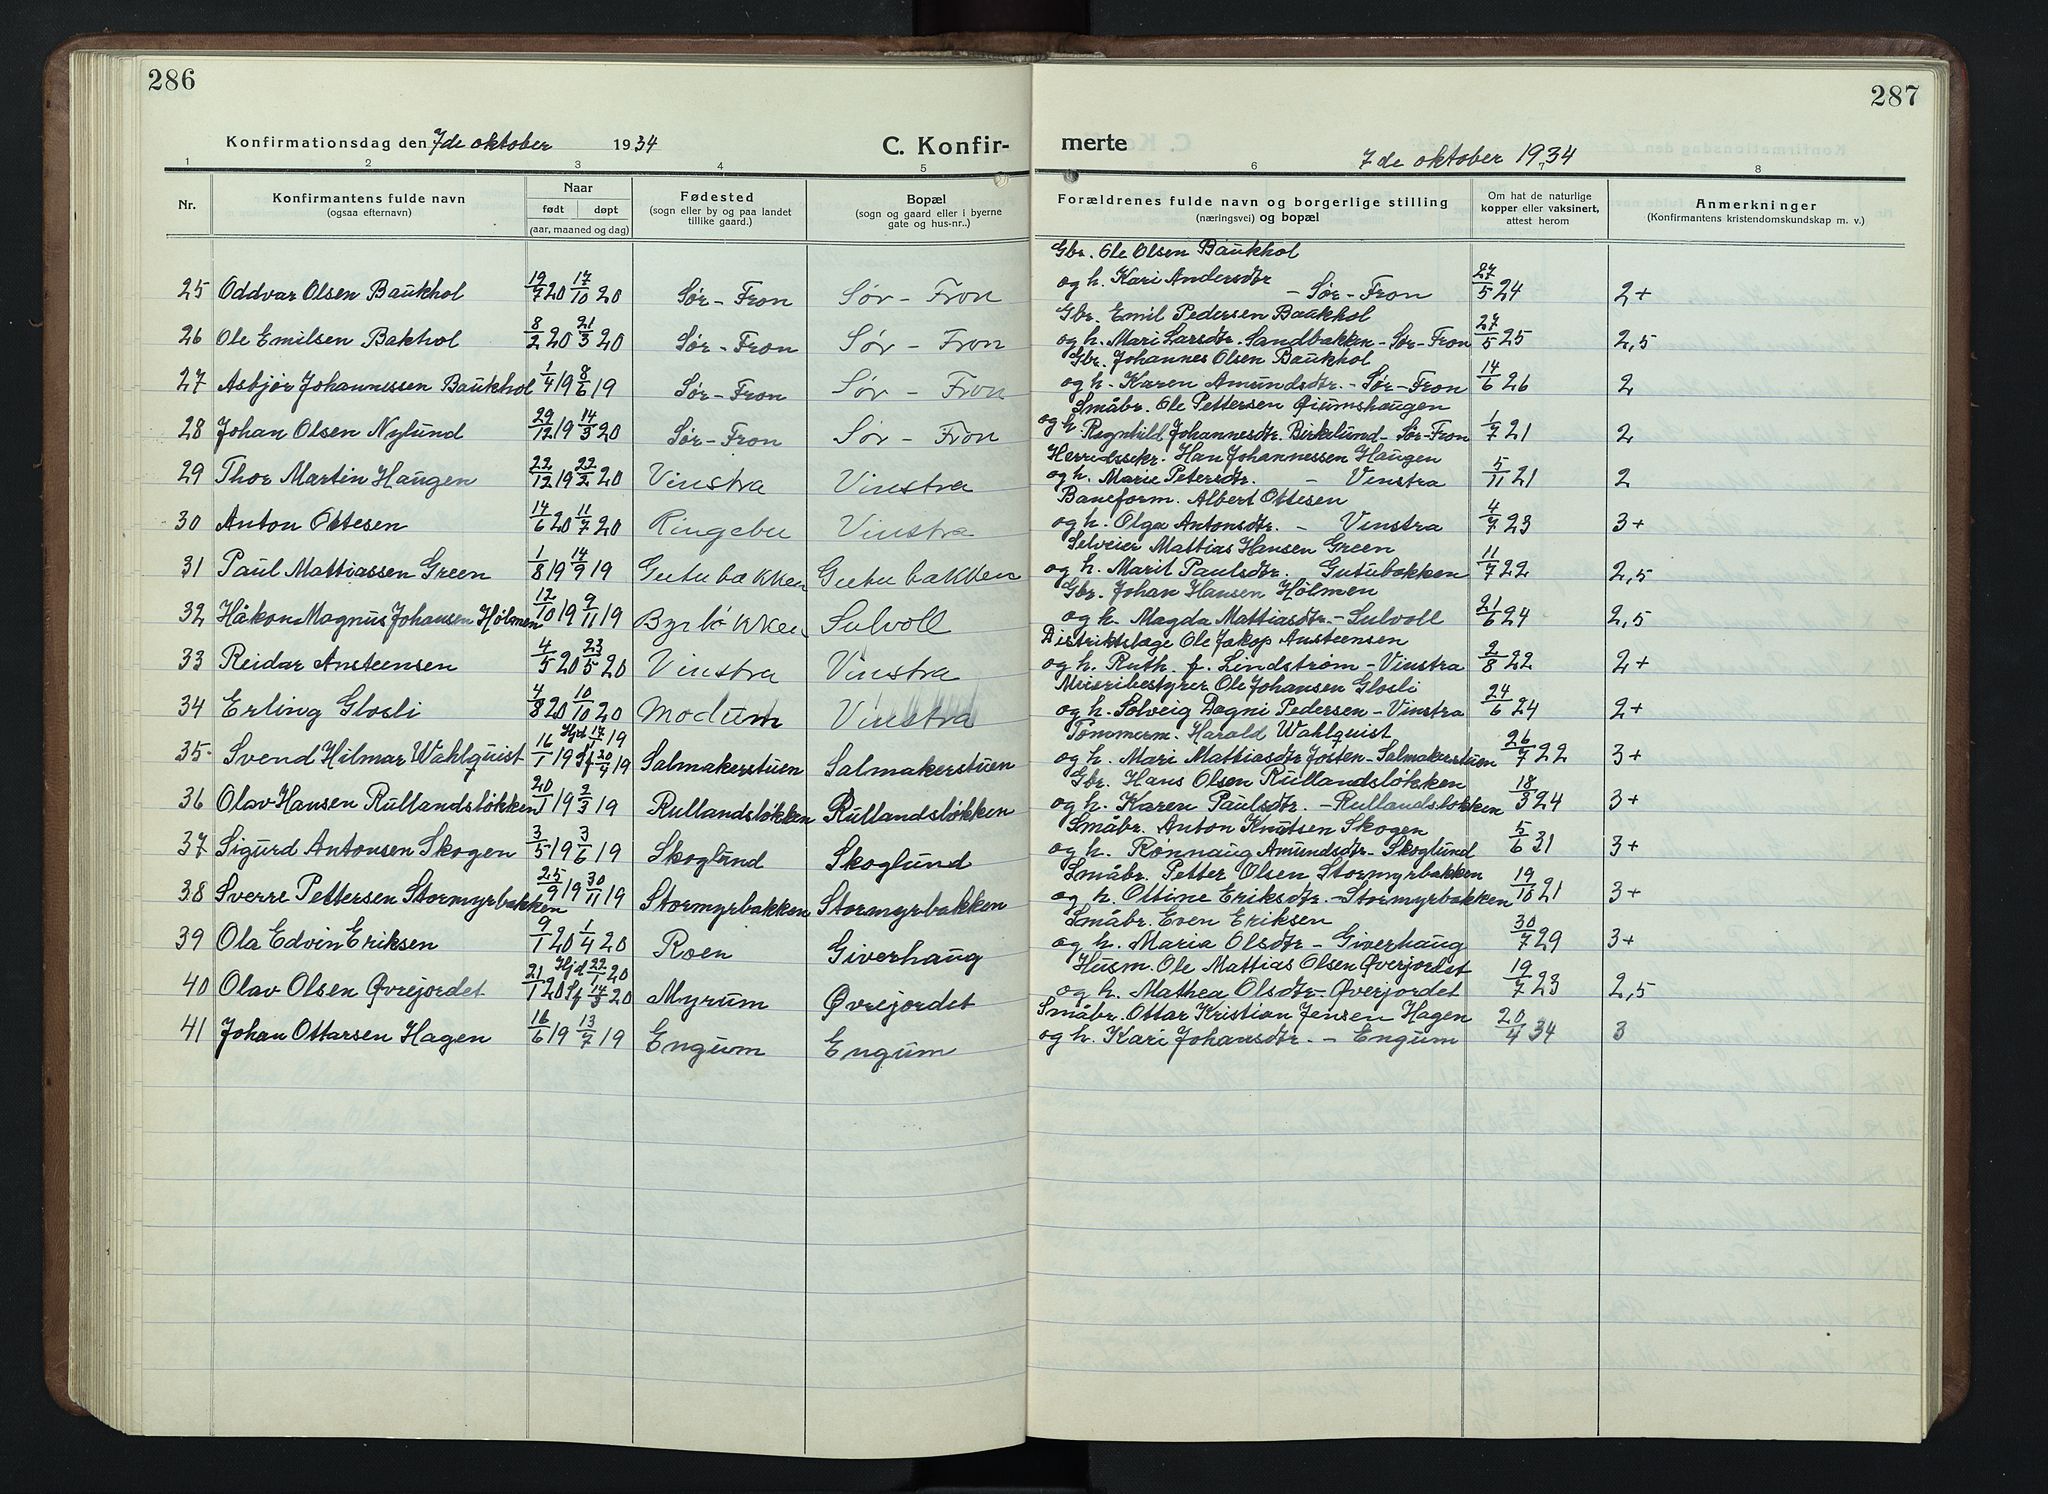 286
Konfirmationsdag den 7de oktober 1934
C. Konfir-
1 2 3 4 5
Nr.
Konfirmantens fulde navn
(ogsaa efternavn)
Naar
født døpt
(aar, maaned og dag)
Fødested
(sogn eller by og paa landet
tillike gaard.)
Bopæl
(sogn og gaard eller i byerne
gate og hus-nr..)
25 Oddvar Olsen Baukhol 19/7 20 17/10 20 Sør-Fron Sør - Fron
26 Ole Emilsen Bakhol 8/2 20 21/3 20 Sør-Fron Sør - Fron
27 Asbjør Johannessen Baukhol 1/4 19 8/6 19 Sør-Fron Sør - Fron
28 Johan Olsen Nylund 29/12 19 14/3 20 Sør-Fron Sør - Fron
29 Thor Martin Haugen 22/12 19 22/2 20 Vinstra Vinstra
30 Anton Ottesen 14/6 20 11/7 20 Ringebu Vinstra
31 Paul Mattiassen Green 1/8 19 14/9 19 Gutubakken Gutubakken
32 Håkon Magnus Johansen Hølmen 12/10 19 9/11 19 Byrløkken Sulvoll
33 Reidar Ansteensen 4/5 20 23/5 20 Vinstra Vinstra
34 Erling Glosli 4/8 20 10/10 20 Modum Vinstra
35. Svend Hilmar Wahlquist 16/1 19 Hjd 17/1 19 Sf 20/4 19 Salmakerstuen Salmakerstuen
36 Olav Hansen Rullandsløkken 20/1 19 2/3 19 Rullandsløkken Rullandsløkken
37 Sigurd Antonsen Skogen 3/5 19 3/6 19 Skoglund Skoglund
38 Sverre Pettersen Stormyrbakken 25/9 19 30/11 19 Stormyrbakken Stormyrbakken
39 Ola Edvin Eriksen 9/1 20 1/4 20 Roen Giverhaug
40 Olav Olsen Øvrejordet 21/1 20 Hjd 22/1 20 Sf 14/3 20 Myrum Øvrejordet
41 Johan Ottarsen Hagen 16/6 19 13/7 19 Engum Engum
287
merte
7de oktober 1934
6 7 8
Forældrenes fulde navn og borgerlige stilling
(næringsvei) og bopæl
Om hat de naturlige
kopper eller vaksinert,
attest herom
Anmerkninger
(Konfirmantens kristendomskundskap m. v.)
Gbr. Ole Olsen Baukhol
og h. Kari Andersdtr - Sør-Fron 27/5 24 2+
Gbr. Emil Pedersen Baukhol
og h. Mari Larsdtr. Sandbakken - Sør-Fron 27/5 25 2,5
Gbr. Johannes Olsen Baukhol
og h. Karen Amundsdtr. - Sør-Fron 14/6 26 2
Småbr. Ole Pettersen Øiumshaugen
og h. Ragnhild Johannesdtr. Birkelund - Sør-Fron 1/7 21 2
Herredssekr. Han Johannessen Haugen
og h. Marie Petersdtr. - Vinstra 5/11 21 2
Baneform. Albert Ottesen
og h. Olga Antonsdtr. - Vinstra 4/7 23 3+
Selveier Mattias Hansen Green
og h. Marit Paulsdtr. Gutubakken 11/7 22 2,5
Gbr. Johan Hansen Hølmen
og h. Magda Mattiasdtr. - Sulvoll 21/6 24 2,5
Distriktslæge Ole Jakop Ansteensen
og h. Ruth f. Lindstrøm - Vinstra 2/8 22 2+
Meieribestyrer Ole Johansen Glosli
og h. Solveig Dagni Pedersen - Vinstra 24/6 24 2+
Tømmerm. Harald Wahlquist
og h. Mari Mattiasdtr Josten - Salmakerstuen 26/7 22 3+
Gbr. Hans Olsen Rullandsløkken
og h. Karen Paulsdtr. - Rullandsløkken 18/3 24 3+
Småbr. Anton Knutsen Skogen
og h. Rønnaug Amundsdtr - Skoglund 5/6 31 3+
Småbr. Petter Olsen Stormyrbakken
og h. Ottine Eriksdtr. - Stormyrbakken 19/10 21 3+
Småbr. Even Eriksen
og h. Maria Olsdtr - Giverhaug 30/7 29 3+
Husm. Ole Mattias Olsen Øverjordet
og h. Mathea Olsdtr. Øverjordet 19/7 23 2,5
Småbr. Ottar Kristian Jensen Hagen
og h. Kari Johansdtr. - Engum 20/4 34 3